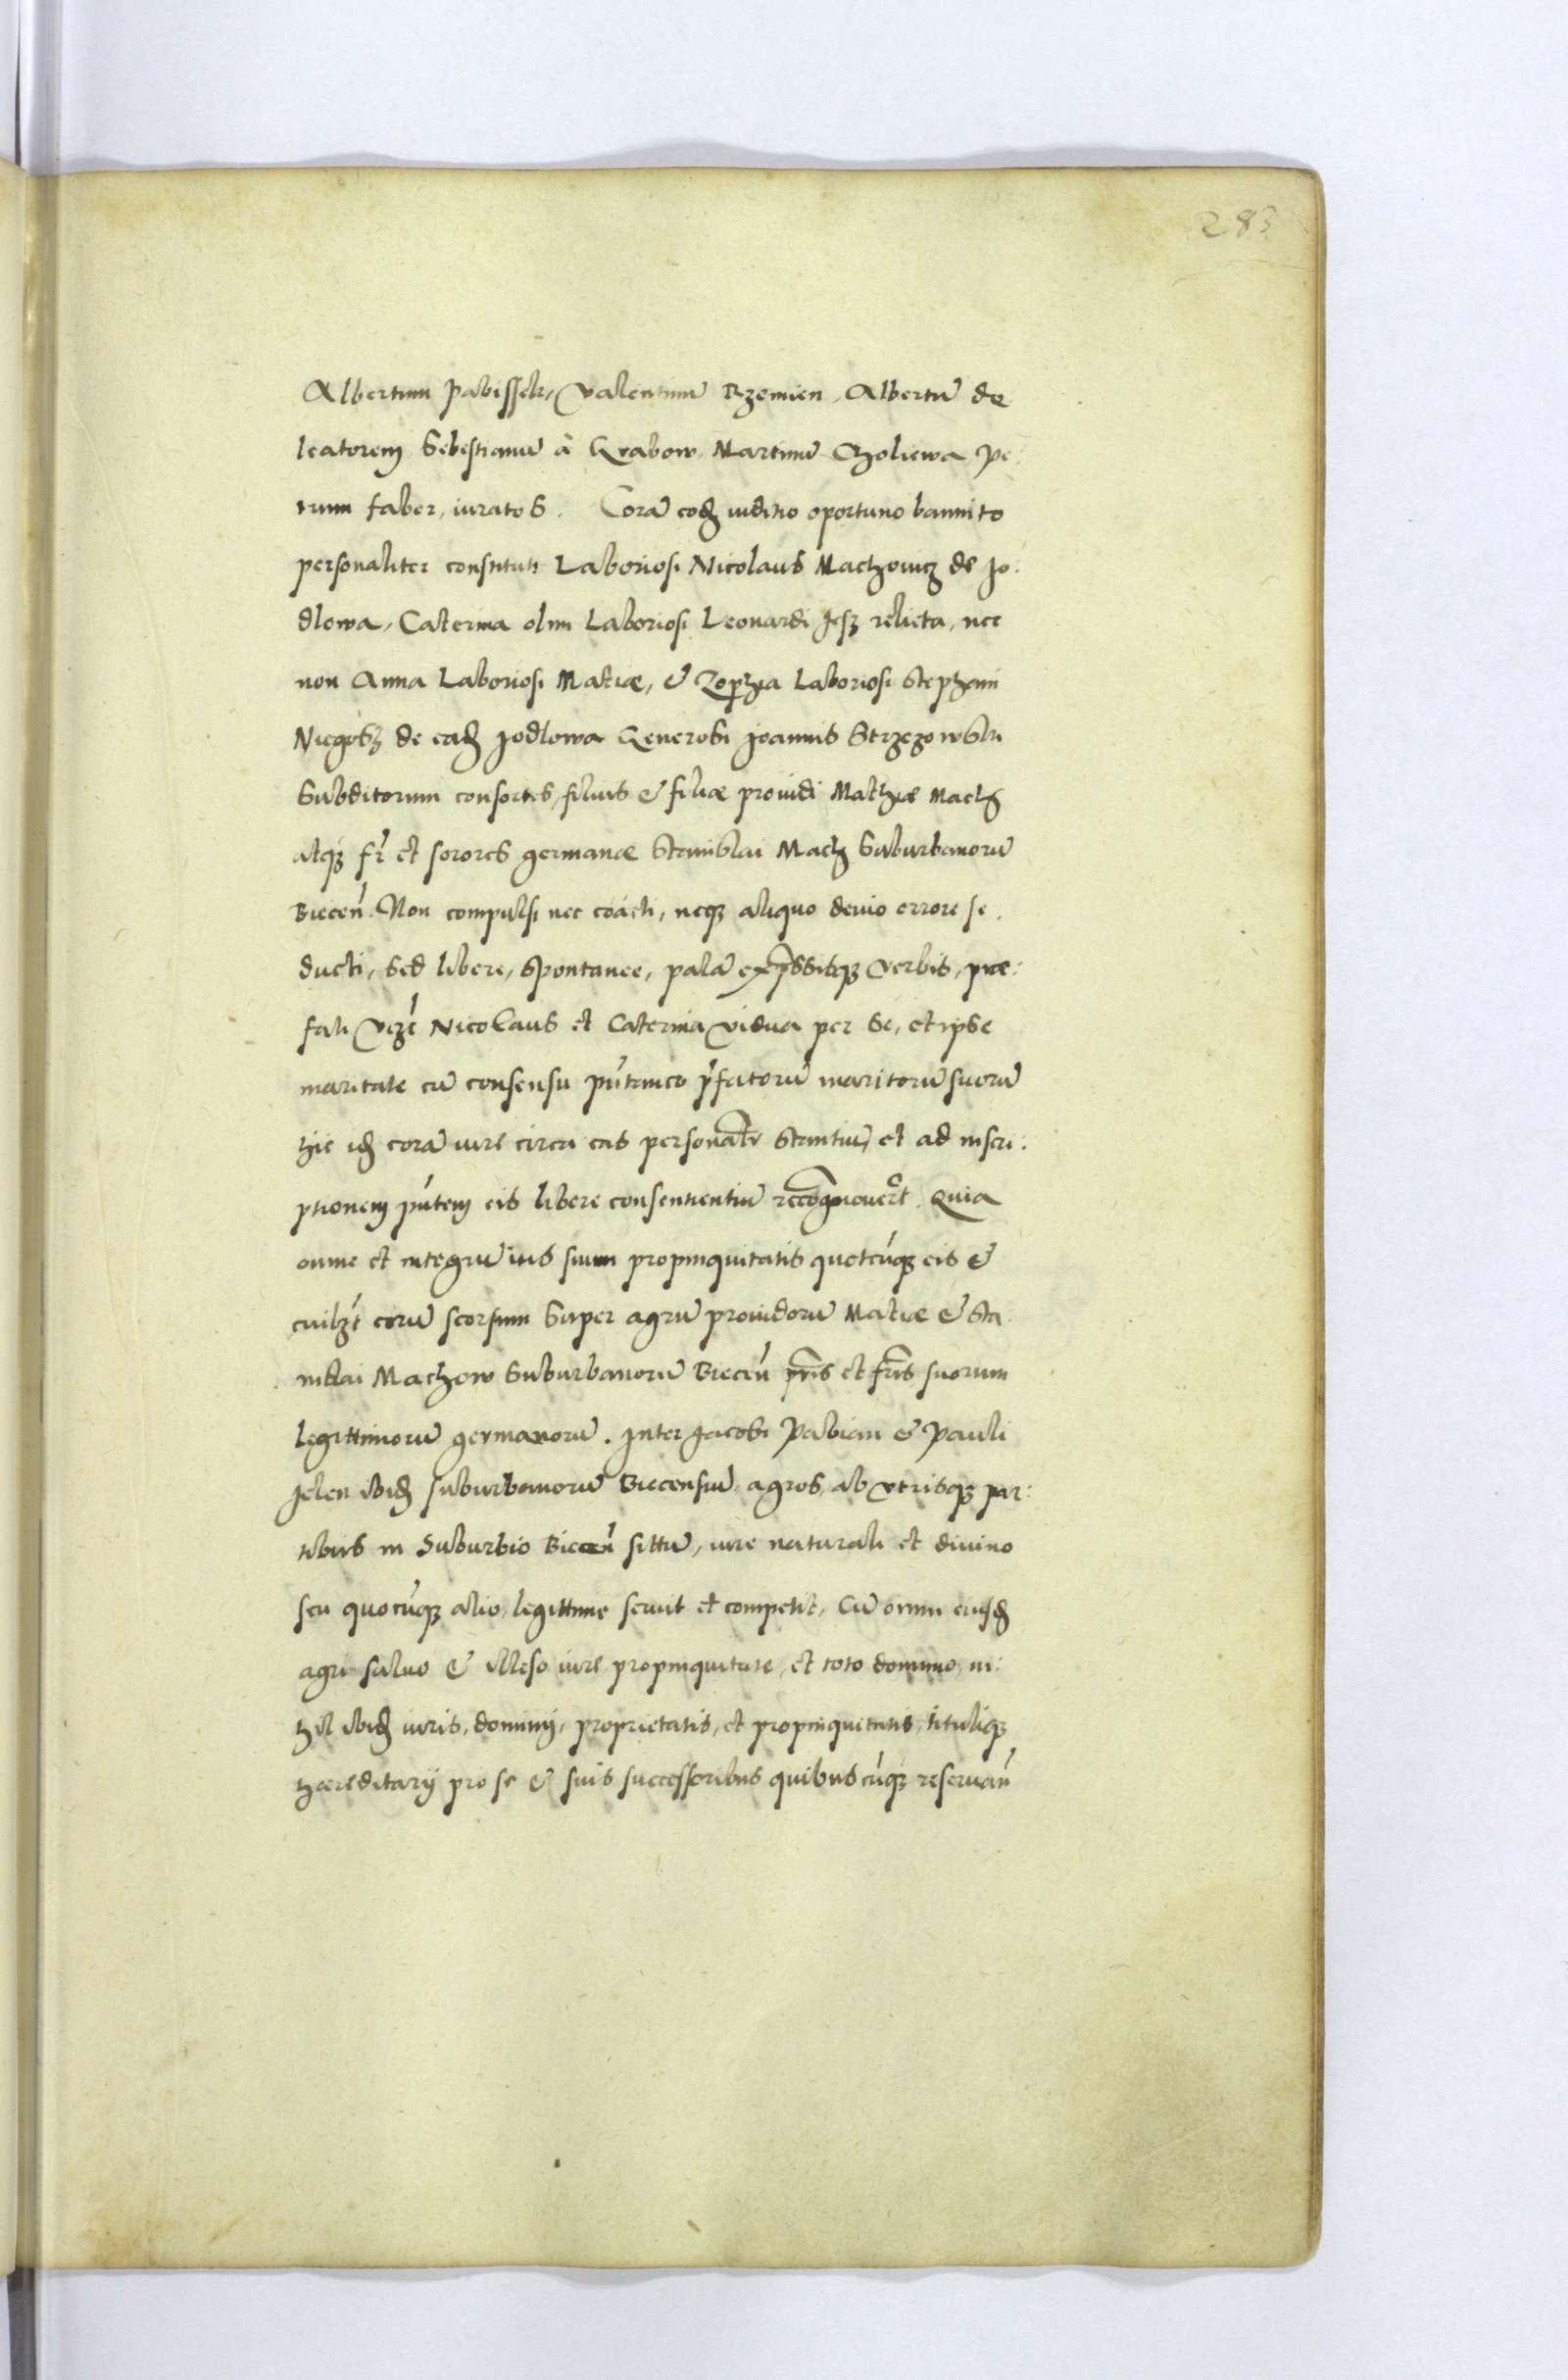 283
Albertum Pabissek, Valentinũ Rzemien, Albertũ do
leatorem Sebestianũ à Grabow Martinũ Choliewa Pe
trum faber, iuratos. Corã eodẽ iuditio oportuno bannito
personaliter constituti Laboriosi Nicolaus Machowicz de Jo:
dlowa, Caterina olim Laboriosi Leonardi Jesz relicta, nec
non Anna Laboriosi Matiæ, & Zophia Laboriosi Stephani
Niegosz de eadẽ Jodlowa Generosi Joannis Strzezowski
Subditorum consortes, filius & filiæ prouidi Mathiæ Mach
atqз fr̃ et sorores germanæ Stanislai Mach Suburbanorũ
Biecen̄. Non compulsi nec coacti, neqз aliquo deuio errore se
ducti, sed libere, spontanee, palã exp̃ssisqз verbis, præ:
fati vz̄t Nicolaus et Caterina vidua per se, et ipsæ
maritatæ cũ consensu pn̄taneo p̄fatorũ maritorũ suorũ
hic idẽ corã iure circa eas personal̃r stantiũ, et ad inscri:
ptionem pn̄tem eis libere consentientiũ recogñouer̃t. Quia
omne et integrũ ius suum propinquitatis quotcũqз eis &
cuilzt̄ eorũ seorsum super agrũ prouidorũ Matiæ & Sta
nislai Machow Suburbanorũ Biecen̄ pr̃is et fr̃is suorum
legittimorũ germanorũ. Inter Jacobi Pabian & Pauli
Jelen ibidẽ suburbanorũ Biecensiũ agros, ab vtrisqз par:
tibus in Suburbio Biecen̄ sittũ, iure naturali et diuino
seu quocũqз alio, legittime seruit et competit, Cũ omni eiusdẽ
agri saluo & illeso iure, propinquitate, et toto dominio, ni:
hil ibidẽ iuris, dominij, proprietatis, et propinquitatis, tituliqз
hæreditarij pro se & suis successoribus quibuscũqз reseruan̄